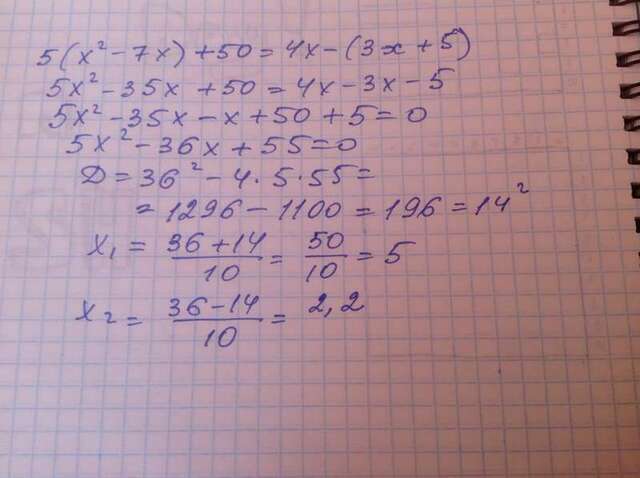 5(x² - 7x) + 50 = 4x - (3x + 5)
5x² - 35x + 50 = 4x - 3x - 5
5x² - 35x - x + 50 + 5 = 0
5x² - 36x + 55 = 0
D = 36² - 4 · 5 · 55 =
= 1296 - 1100 = 196 = 14²
x₁ = (36 + 14)/10 = 50/10 = 5
x₂ = (36 - 14)/10 = 2,2